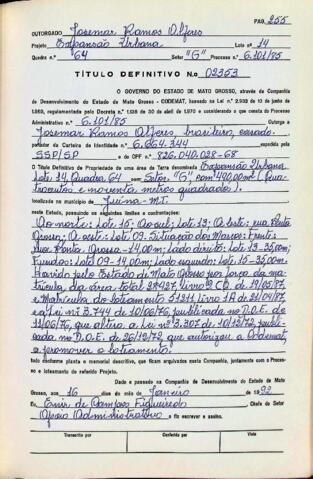 PAG. 255
OUTORGADO Josemar Ramos Alferes
Projeto Expansão Urbana Lote nº 14
Quadra nº 64 Setor "G" Processo nº 6.101/85
TÍTULO DEFINITIVO No. 02353
O GOVERNO DO ESTADO DE MATO GROSSO, através da Companhia
de Desenvolvimento do Estado de Mato Grosso - CODEMAT, baseado na Lei n.
regulamentada pelo Decreto N. de 30 de abril de 1970 e considerando o que consta do Processo
Administrativo nº 6.101/85 Outorga a
Josemar Ramos Alferes, brasileiro, casado
portador da Carteira de Identidade nº 6.664.344 expedida pela
SSP/SP e do CPF nº 826.040.028-68
o Título Definitivo de Propriedade de uma área de Terra denominada Expansão Urbana
Lote 14, Quadra 64 Setor: "G", com 490,00m² (Qua-
trocentos e noventa metros quadrados).
localizada no município de Juína-MT.
neste Estado, possuindo os seguintes limites e confrontações:
Ao norte: Lote-15; Ao sul: Lote-13; A leste: rua Ponta
Grossa; A oeste: Lote-09. Situação dos Marcos: Frente:
rua Ponta Grossa-14,00m; Lado direito: Lote-13-35,00m;
Fundos: Lote-09-14,00m; Lado esquerdo: Lote-15-35,00m.
Havido pelo Estado de Mato Grosso por força da ma-
trícula, da área total
e Matrícula do loteamento
e a Lei nº 3.744 de 10/06/76, publicada no D.O.E. de
11/06/76, que altera a Lei nº 3.307 de 10/12/72, publi-
cada no D.O.E. de 26/12/72 que autorizou a Codemat,
a promover o loteamento.
tudo conforme planta e memorial descritivo, que ficam arquivados nesta Companhia, juntamente com o Proces-
so e loteamento do referido Projeto.
Dado e passado na Companhia de Desenvolvimento do Estado de Mato
Grosso, aos 16 dias do mês de Janeiro de 1992
Eu Emir de Campos Figueiredo Chefe do Setor
Apoio Administrativo o fiz escrever e assino.
Transcrito por Conferido por Visto